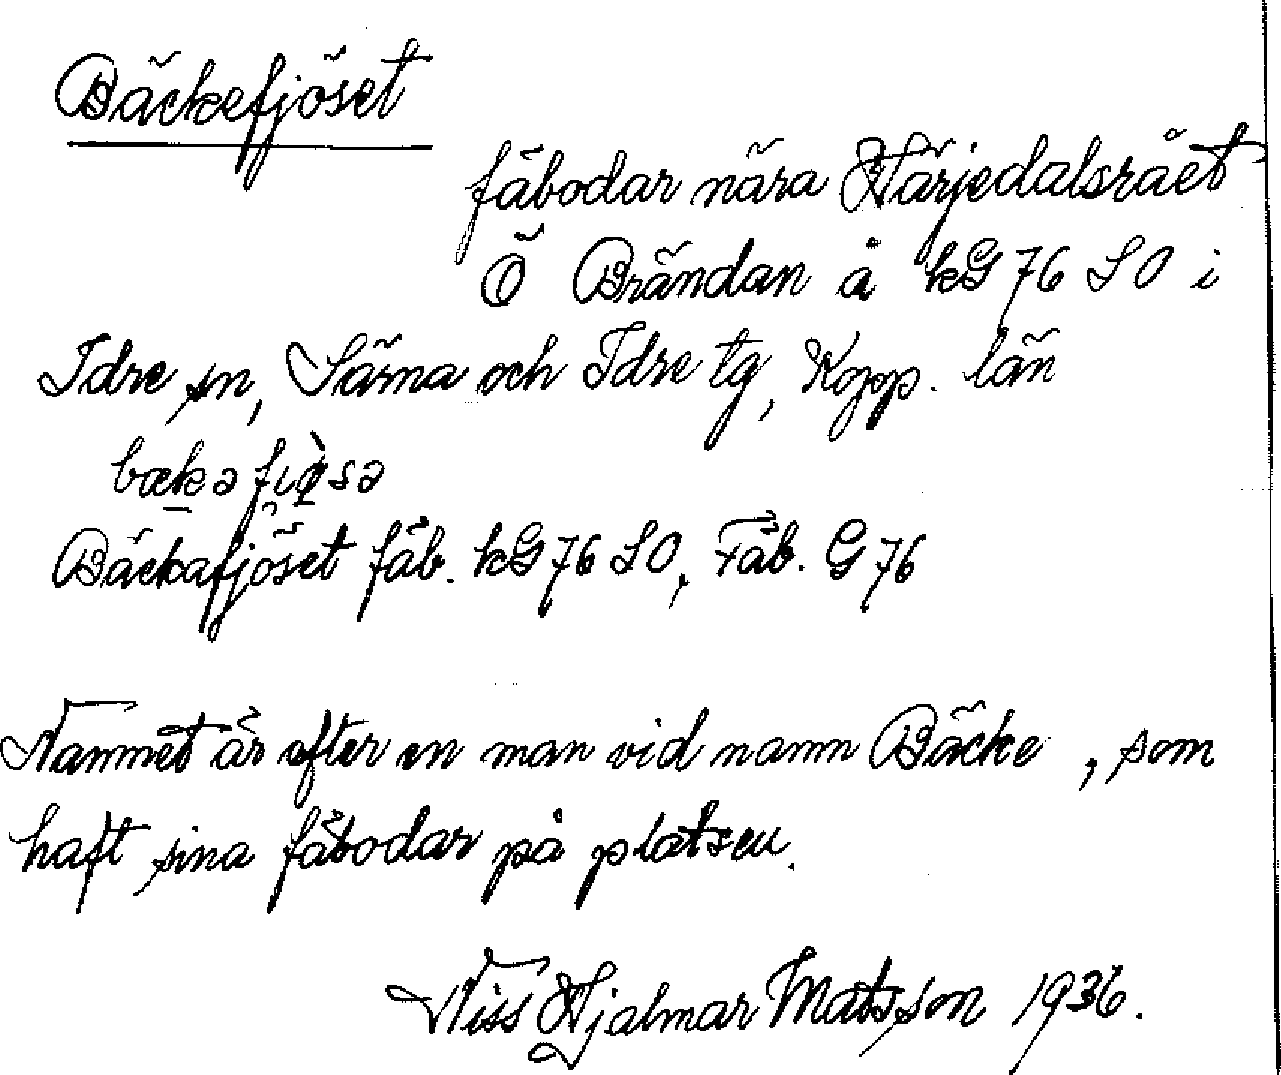 Bäckefjöset
fäbodar nära Härjedalsråët
Ö Brändan å kG 76 SO i
Idre sn, Särna och Idre tg, Kopp. län
Bäckafjöset fäb. kG 76 SO, Fäb. G 76
Namnet är efter en man vid namn Bäcke, som
haft sina fäbodar på platsen.
Niss Hjalmar Matsson 1936.